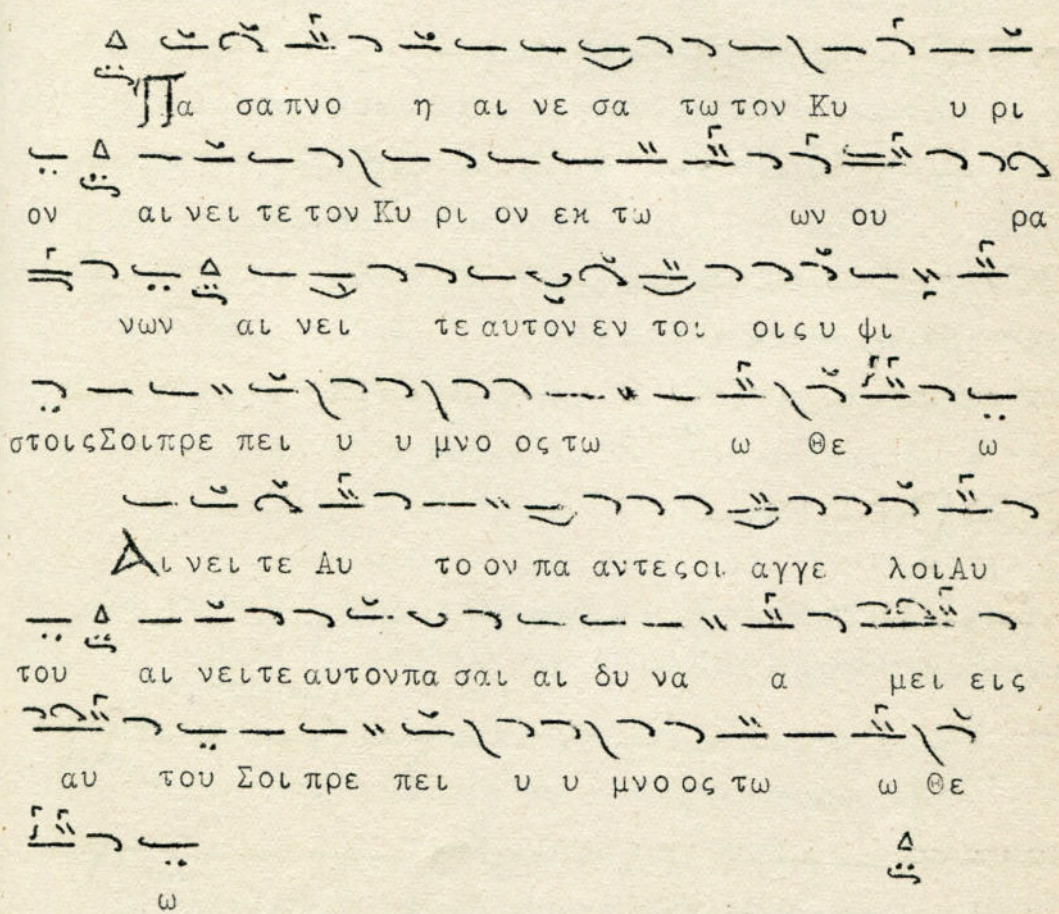 Πα σα πνο η αι νε σα τω τον Κυ υ ρι
ον αι νει τε τον Κυ ρι ον εκ τω ων ου ρα
νων αι νει τε αυτον εν τοι οις υ ψι
στοις Σοι πρε πει υ υ μνο ος τω ω Θε ω
Αι νει τε Αυ το ον πα αντες οι αγγε λοι Αυ
του αι νει τε αυτον πα σαι αι δυ να α μει εις
αυ του Σοι πρε πει υ υ μνο ος τω ω Θε
ω